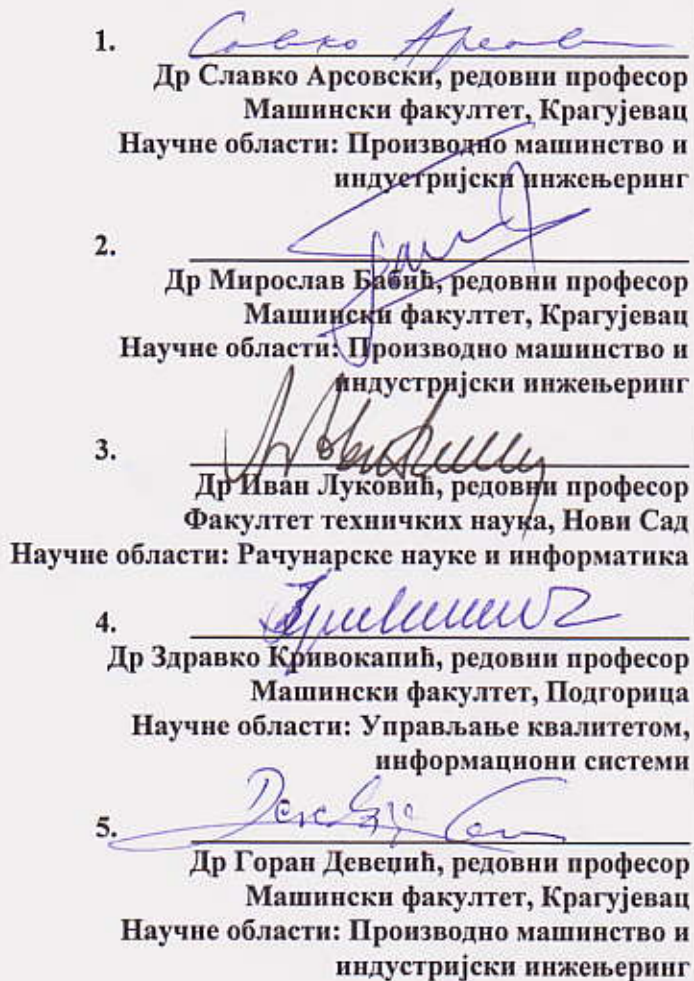 1.
Др Славко Арсовски, редовни професор
Машински факултет, Крагујевац
Научне области: Производно машинство и
индустријски инжењеринг
2.
Др Мирослав Бабић, редовни професор
Машински факултет, Крагујевац
Научне области: Производно машинство и
индустријски инжењеринг
3.
Др Иван Луковић, редовни професор
Факултет техничких наука, Нови Сад
Научне области: Рачунарске науке и информатика
4.
Др Здравко Кривокапић, редовни професор
Машински факултет, Подгорица
Научне области: Управљање квалитетом,
информациони системи
5.
Др Горан Девеџић, редовни професор
Машински факултет, Крагујевац
Научне области: Производно машинство и
индустријски инжењеринг